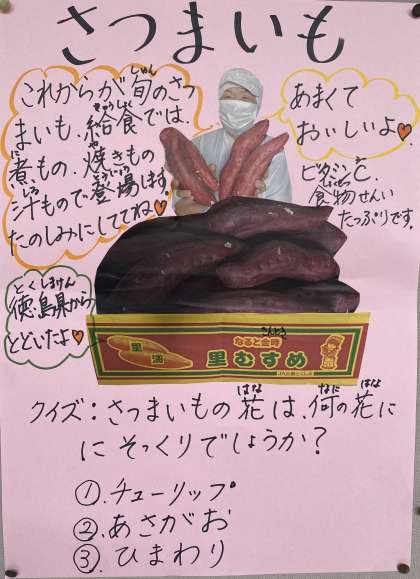 さつまいも
これからが旬のさつ
まいも、給食では、
煮もの、焼きもの
汁もので登場します。
たのしみにしててね
あまくて
おいしいよ
ビタミンC、
食物せんい
たっぷりです。
徳島県から
とどいたよ
なると金時
里浦
里むすめ
クイズ：さつまいもの花は、何の花に
にそっくりでしょうか？
①.チューリップ
②.あさがお
③.ひまわり